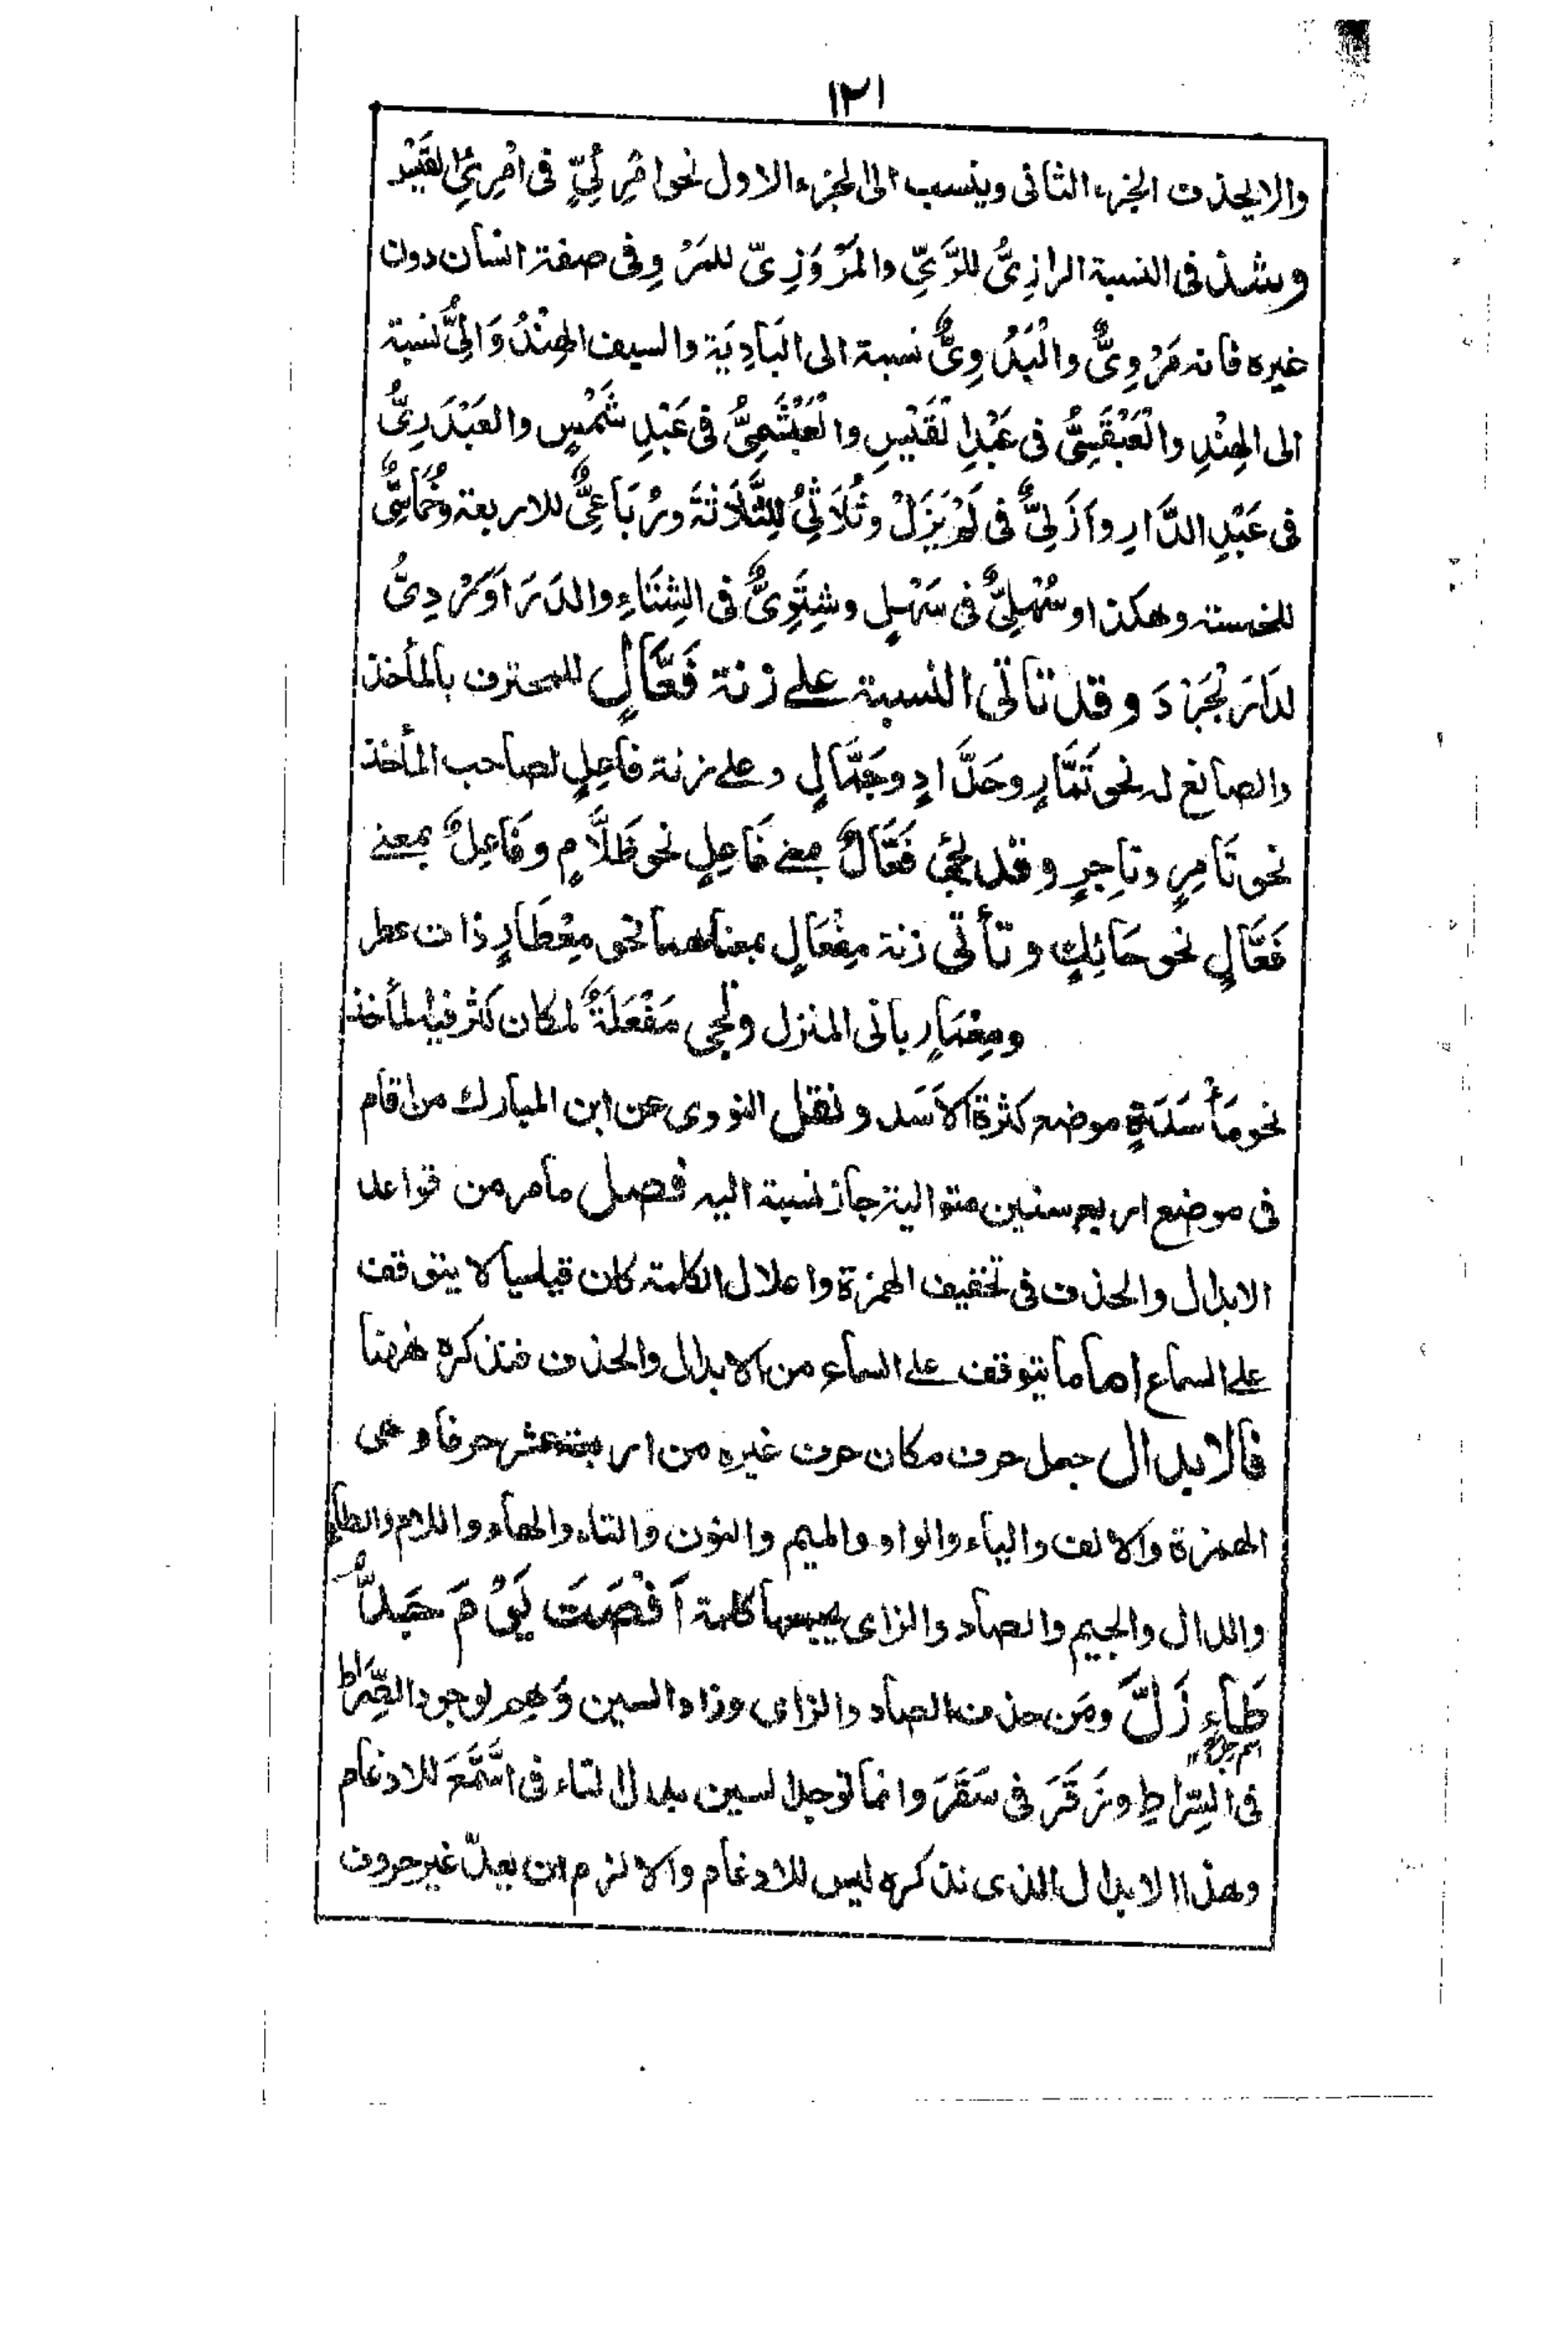 ١٢١
والا يحذف الجزء الثانى وينسب الى الجزء الاول نحو امْرِئِيٍّ فى امْرِئِ القَيْد
وشذ فى النسبة الرازِيُّ للرَّيِّ والمَرْوَزِيّ للمَرْوِ فى صفة انسان دون
غيره فانه مَرْوِيٌّ والْبَدْوِيٌّ نسبة الى البَادِيَة والسيف الهِنْدُوَانِيُّ نسبة
الى الهِنْدِ والْعَبْقَسِيُّ فى عَبْدِ الْقَيْسِ والْعَبْشَمِيُّ فى عَبْدِ شَمْسٍ والعَبْدَرِيُّ
فى عَبْدِ الدَّارِ واَزَلِيٌّ فى لَمْ يَزَلْ وثُلَاثِيُّ لِلثَّلَاثَةَ ورُبَاعِيٌّ للاربعة وخُمَاسِيٌّ
للخمسة وهكذا وسُهْلِيٌّ فى سَهْلٍ وشِتَوِيٌّ فى الشِتَاءِ والدَرَاوَرْدِيُّ
لدَارَبْجَرْدَ وقد تاتى النسبة على زنة فَعَّالٍ للمحترف بالمأخذ
والصانع له نحو تَمَّارٍ وحَدَّادٍ وجَمَّالٍ وعلى زنة فاعِلٍ لصاحب المأخذ
نحو تَامِرٍ وتاجِرٍ وقد يجئ فَعَّالٌ بمعنے فَاعِلٍ نحو ظَلَّامٍ وفَاعِلٌ بمعنے
فَعَّالٍ نحو حَائِكٍ وتأتى زنة مِفْعَالٍ بمعناهما نحو مِعْطَارٍ ذات عطر
ومِعْمَارٍ بانى المنزل وتجى مَفْعَلَةٌ لمكان كثر فيه المأخذ
نحو مَأْسَدَةٍ موضع كثرة الاَسَد ونقل النووى عن ابن المبارك من اقام
فى موضع اربع سنين متوالية جاز نسبة اليه فصل مامر من قواعد
الابدال والحذف فى تخفيف الهمزة واعلال الكلمة كان قياسيا لا يتوقف
على السماع اما ما يتوقف على السماع من الابدال والحذف فنذكره ههنا
فالابدال جعل حرف مكان حرف غيره من اربعة عشر حرفا وهى
الهمزة والالف والياء والواو والميم والنون والتاء والهاء واللام والطاء
والدال والجيم والصاد والزاى يجمعها كلمة اَنْصَتَ يَوْمَ جَدُّ
طَاءٍ زَلَّ ومَن حذف الصاد والزاى وزاد السين وَهِم لوجود الصِّرَاط
اسم رجل
فى السِّرَاطِ وزَقَرَ فى سَقَرَ وانما توجد السين بدل التاء فى اسَّمَّعَ للادغام
وهذا الابدال الذى نذكره ليس للادغام والا لزم ان يعدّ غير حروف